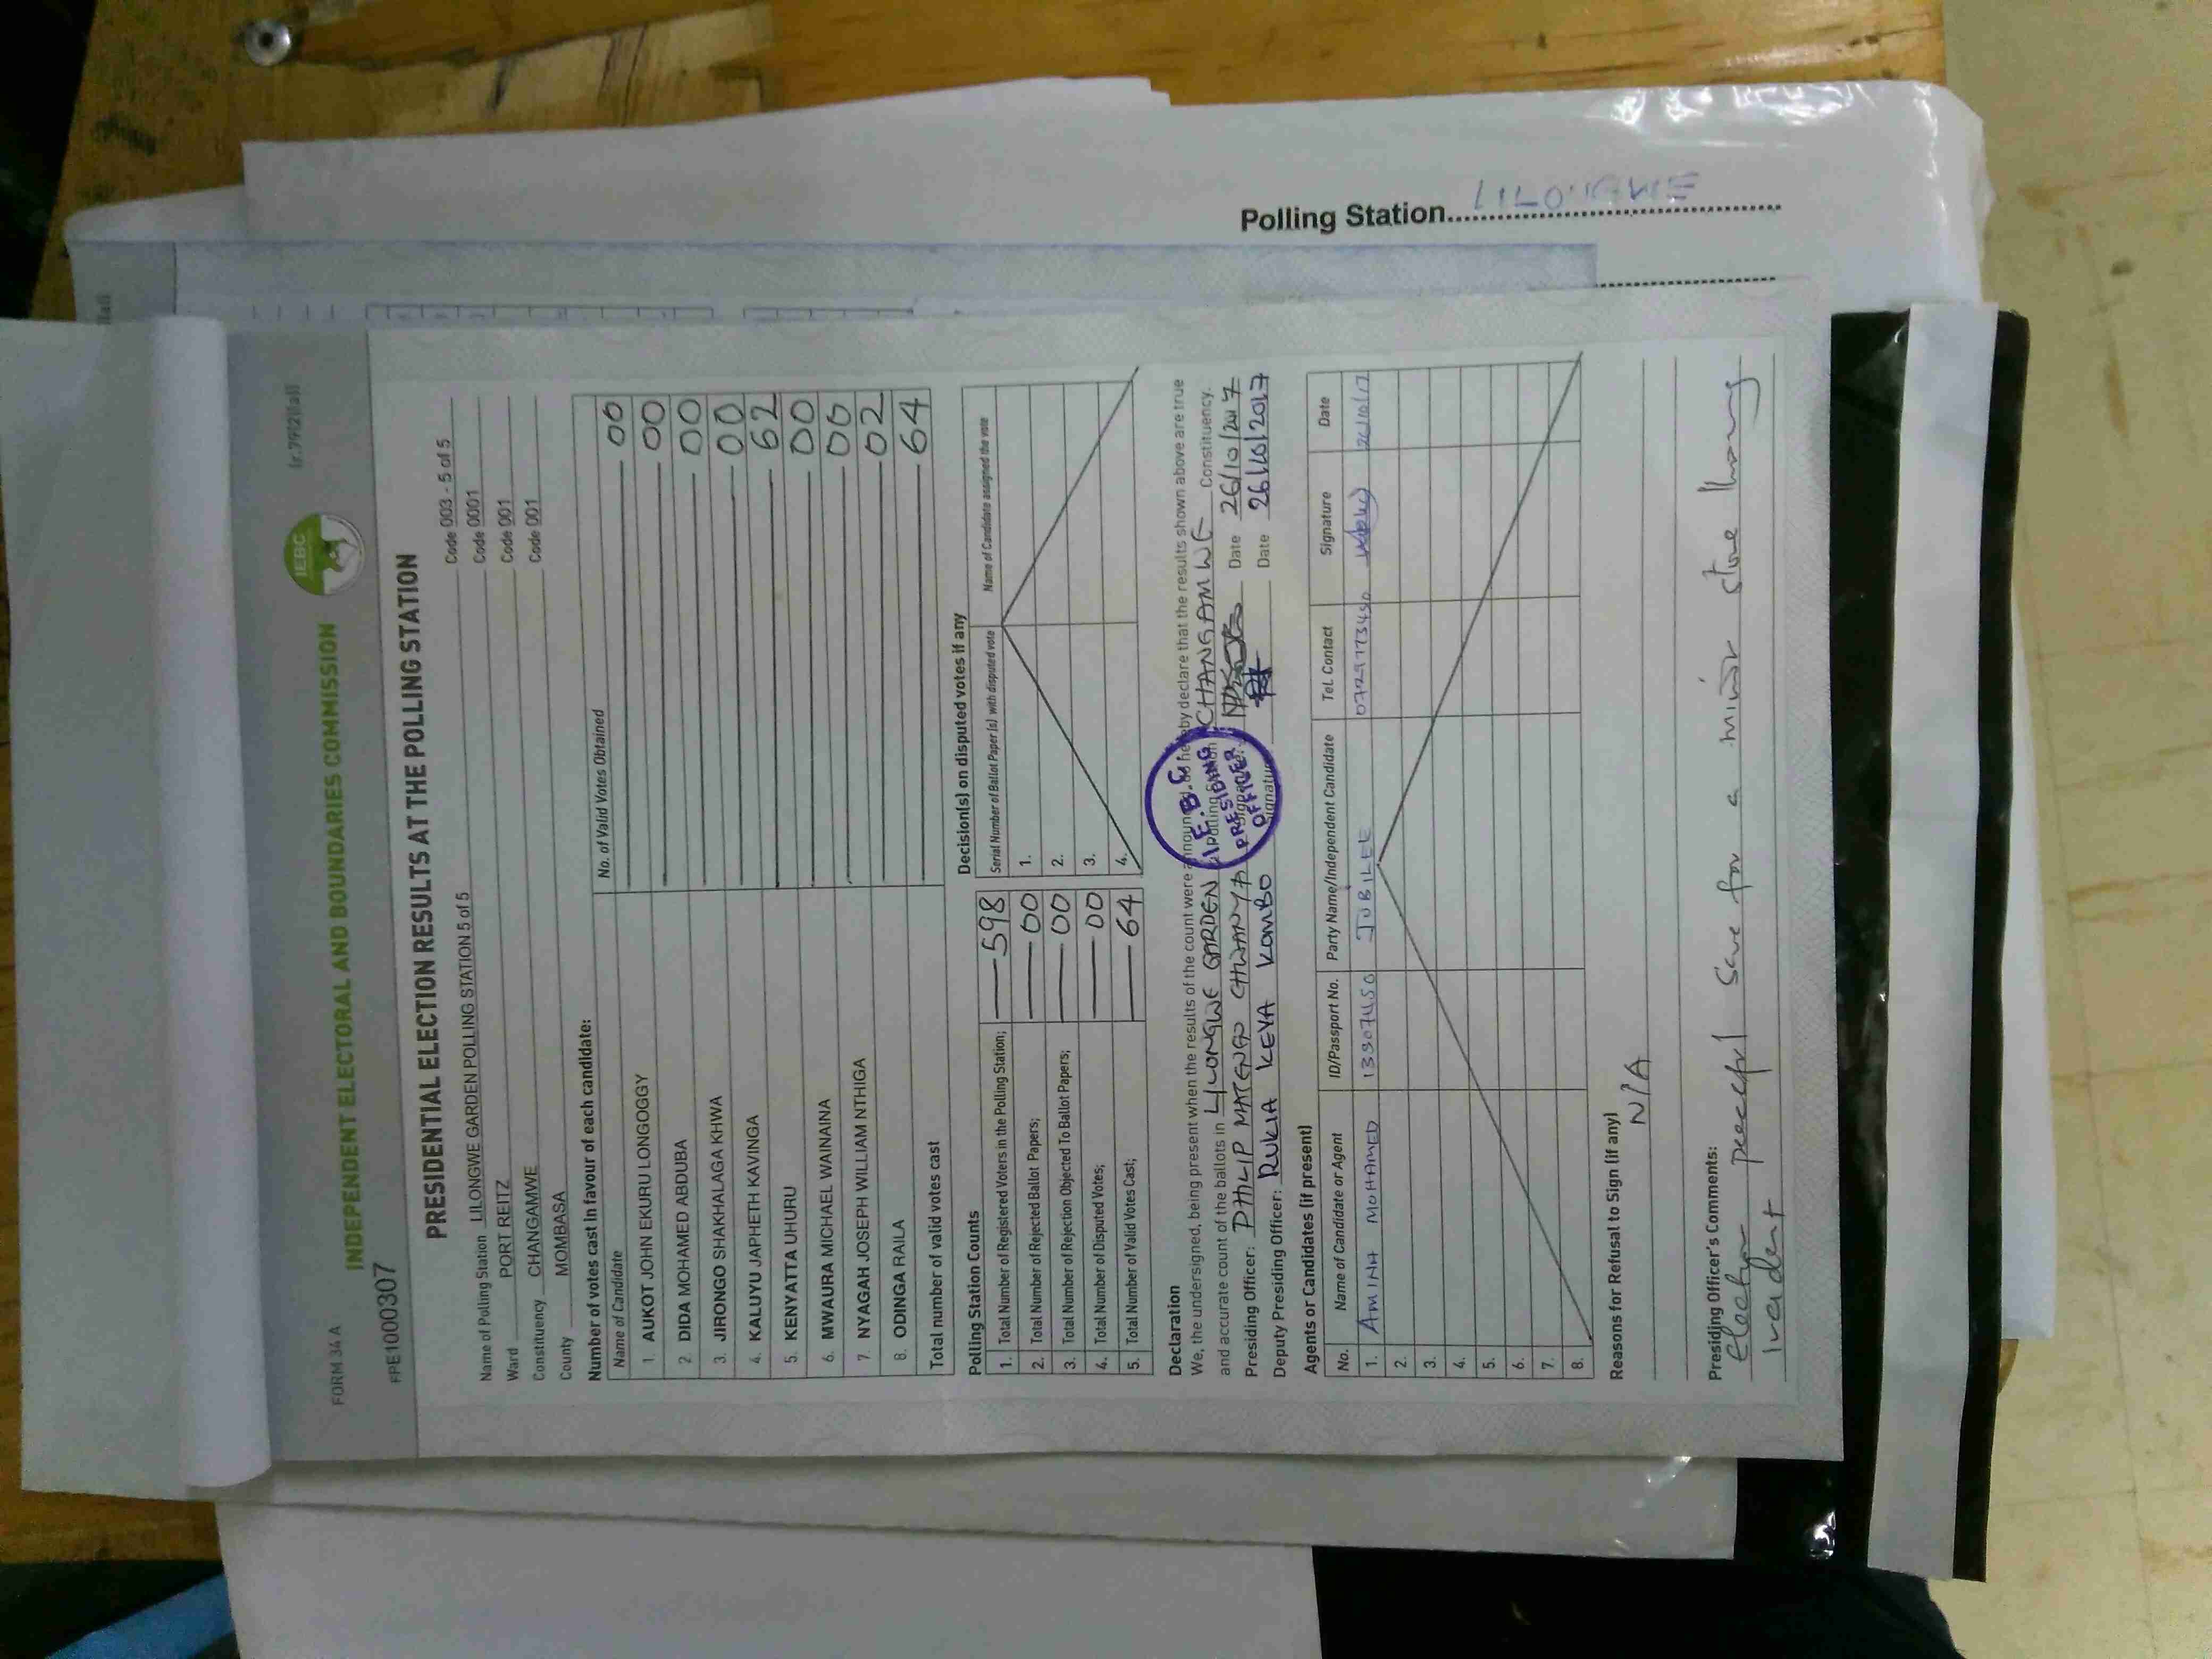 FORM 34 A
INDEPENDENT ELECTORAL AND BOUNDARIES COMMISSION
IEBC
FPE1000307
PRESIDENTIAL ELECTION RESULTS AT THE POLLING STATION
Name of Polling Station LILONGWE GARDEN POLLING STATION 5 of 5 Code 003 - 5 of 5
Ward PORT REITZ Code 0001
Constituency CHANGAMWE Code 001
County MOMBASA Code 001
Number of votes cast in favour of each candidate:
Name of Candidate No. of Valid Votes Obtained
1. AUKOT JOHN EKURU LONGOGGY 00
2 DIDA MOHAMED ABDUBA 00
3. JIRONGO SHAKHALAGA KHWA 00
4. KALUYU JAPHETH KAVINGA 00
5. KENYATTA UHURU 62
6. MWAURA MICHAEL WAINAINA 00
7. NYAGAH JOSEPH WILLIAM NTHIGA 00
8. ODINGA RAILA 02
Total number of valid votes cast 64
Polling Station Counts
1. Total Number of Registered Voters in the Polling Station; 598
2. Total Number of Rejected Ballot Papers; 00
3. Total Number of Rejection Objected To Ballot Papers; 00
4. Total Number of Disputed Votes; 00
5. Total Number of Valid Votes Cast; 64
Decision(s) on disputed votes if any
Serial Number of Ballot Paper (s) with disputed vote Name of Candidate assigned the vote
1.
2.
3.
4.
Declaration
We, the undersigned, being present when the results of the count were announced, do hereby declare that the results shown above are true
and accurate count of the ballots in LILONGWE GARDEN Polling Station CHANGAMWE Constituency.
Presiding Officer: PHILIP MATENGO CHWANYA Signature: Date 26/10/2017
Deputy Presiding Officer: RUKIA KEYA KOMBO Signature Date 26/10/2017
I.E.B.C
PRESIDING
OFFICER
Agents or Candidates (if present)
No. Name of Candidate or Agent ID/Passport No. Party Name/Independent Candidate Tel. Contact Signature Date
1. AMINA MOHAMED 13907450 JUBILEE 0729173450 26/10/17
2.
3.
4.
5.
6.
7.
8.
Reasons for Refusal to Sign (if any)
N/A
Presiding Officer's Comments:
Election peaceful save for a minor stone throwing
incident
Polling Station LILONGWE